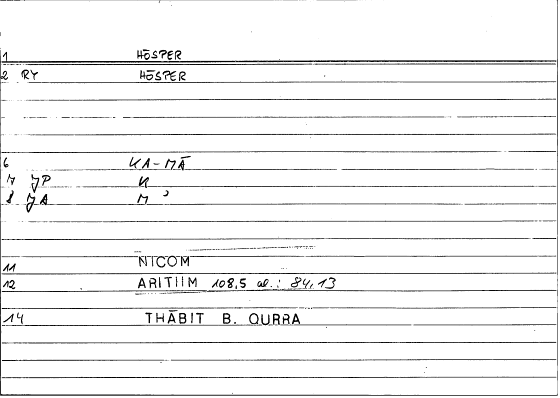 1 HŌSPER
2 RY HŌSPER
6 KA-MĀ
7 JP K
8 JA M ʾ
11 NICOM
12 ARITIIM 108,5 al.: 84,13
14 THĀBIT B. QURRA